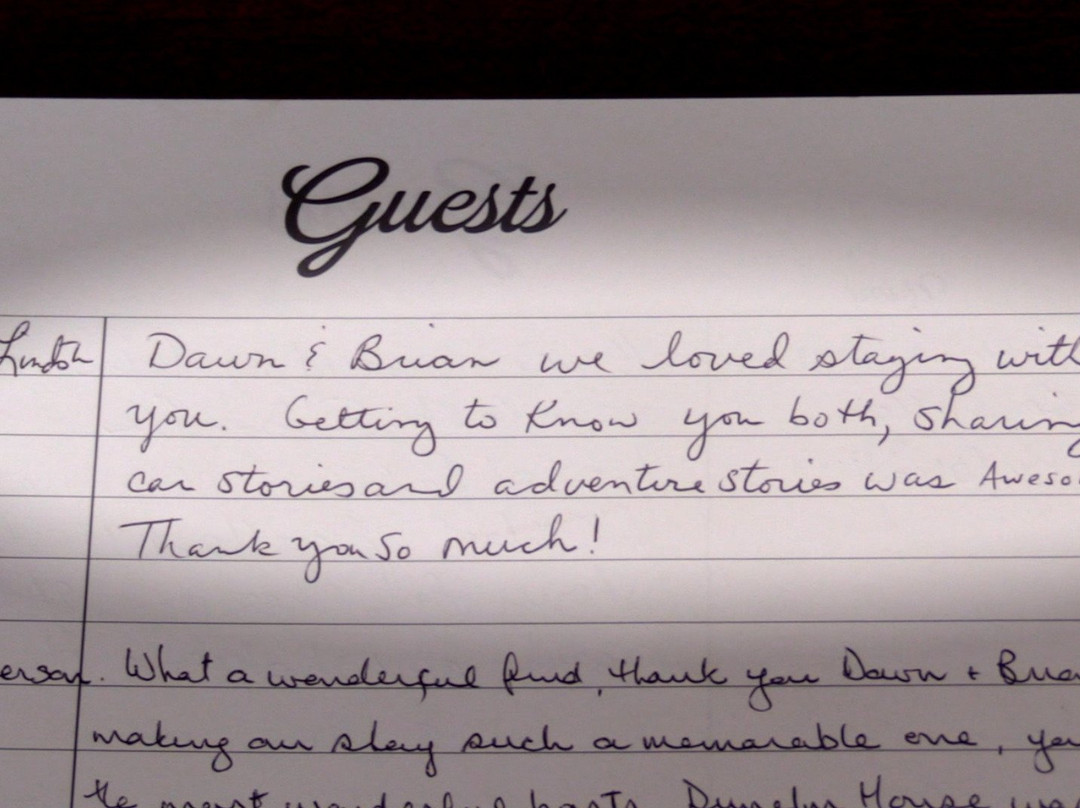 Guests
Dawn & Brian we loved staying with
you. Getting to know you both, sharing
car stories and adventure stories was
Thank you so much!
What a wonderful find, thank you Dawn +
making our stay such a memorable one,
the most wonderful hosts. House